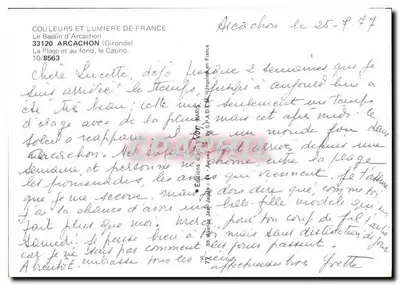 COULEURS ET LUMIERE DE FRANCE
Le Bassin d'Arcachon
33120 ARCACHON (Gironde)
La Plage et au fond, le Casino.
10/8563
Arcachon le 25-7-77
Chère Lucette, déjà presque 2 semaines que je
suis arrivée le temps jusqu'à aujourd'hui a
été très beau; cette nuit seulement un temps
d'orage avec de la pluie mais cet après midi le
soleil a réapparu, il y a un monde fou dans
Arcachon. arrivé depuis une
semaine et personne ne chôme entre la plage
les promenades, les amies qui viennent. Je t'assure
que je me secoue, mais je dois dire que, comme toi,
j'ai la chance d'avoir une belle-fille modèle qui en
fait plus que moi. Merci, pour ton coup de fil l'autre
samedi. Je pense bien à toi mais sans distinction de jour
car je ne sais pas comment les jours passent.
A bientôt embrasse tous les tiens
affectueusement Yvette